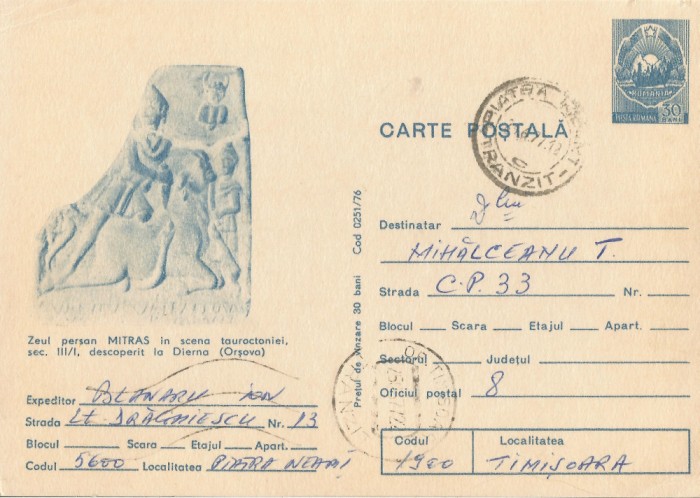 ROMANIA
POSTA ROMANA 50 BANI
CARTE POȘTALĂ
PIATRA NEAMT
TRANZIT
Destinatar
MIHĂLCEANU T.
Strada C.P. 33 Nr.
Blocul Scara Etajul Apart.
Sectorul Județul
Oficiul poștal 8
Codul Localitatea
1900 TIMIȘOARA
Prețul de vînzare 30 bani Cod 0251/76
Zeul persan MITRAS in scena tauroctoniei,
sec. III/I, descoperit la Dierna (Orșova)
Expeditor OLENARU ION
Strada LT DRĂGHIESCU Nr. 13
Blocul Scara Etajul Apart.
Codul 5600 Localitatea PIATRA NEAMȚ